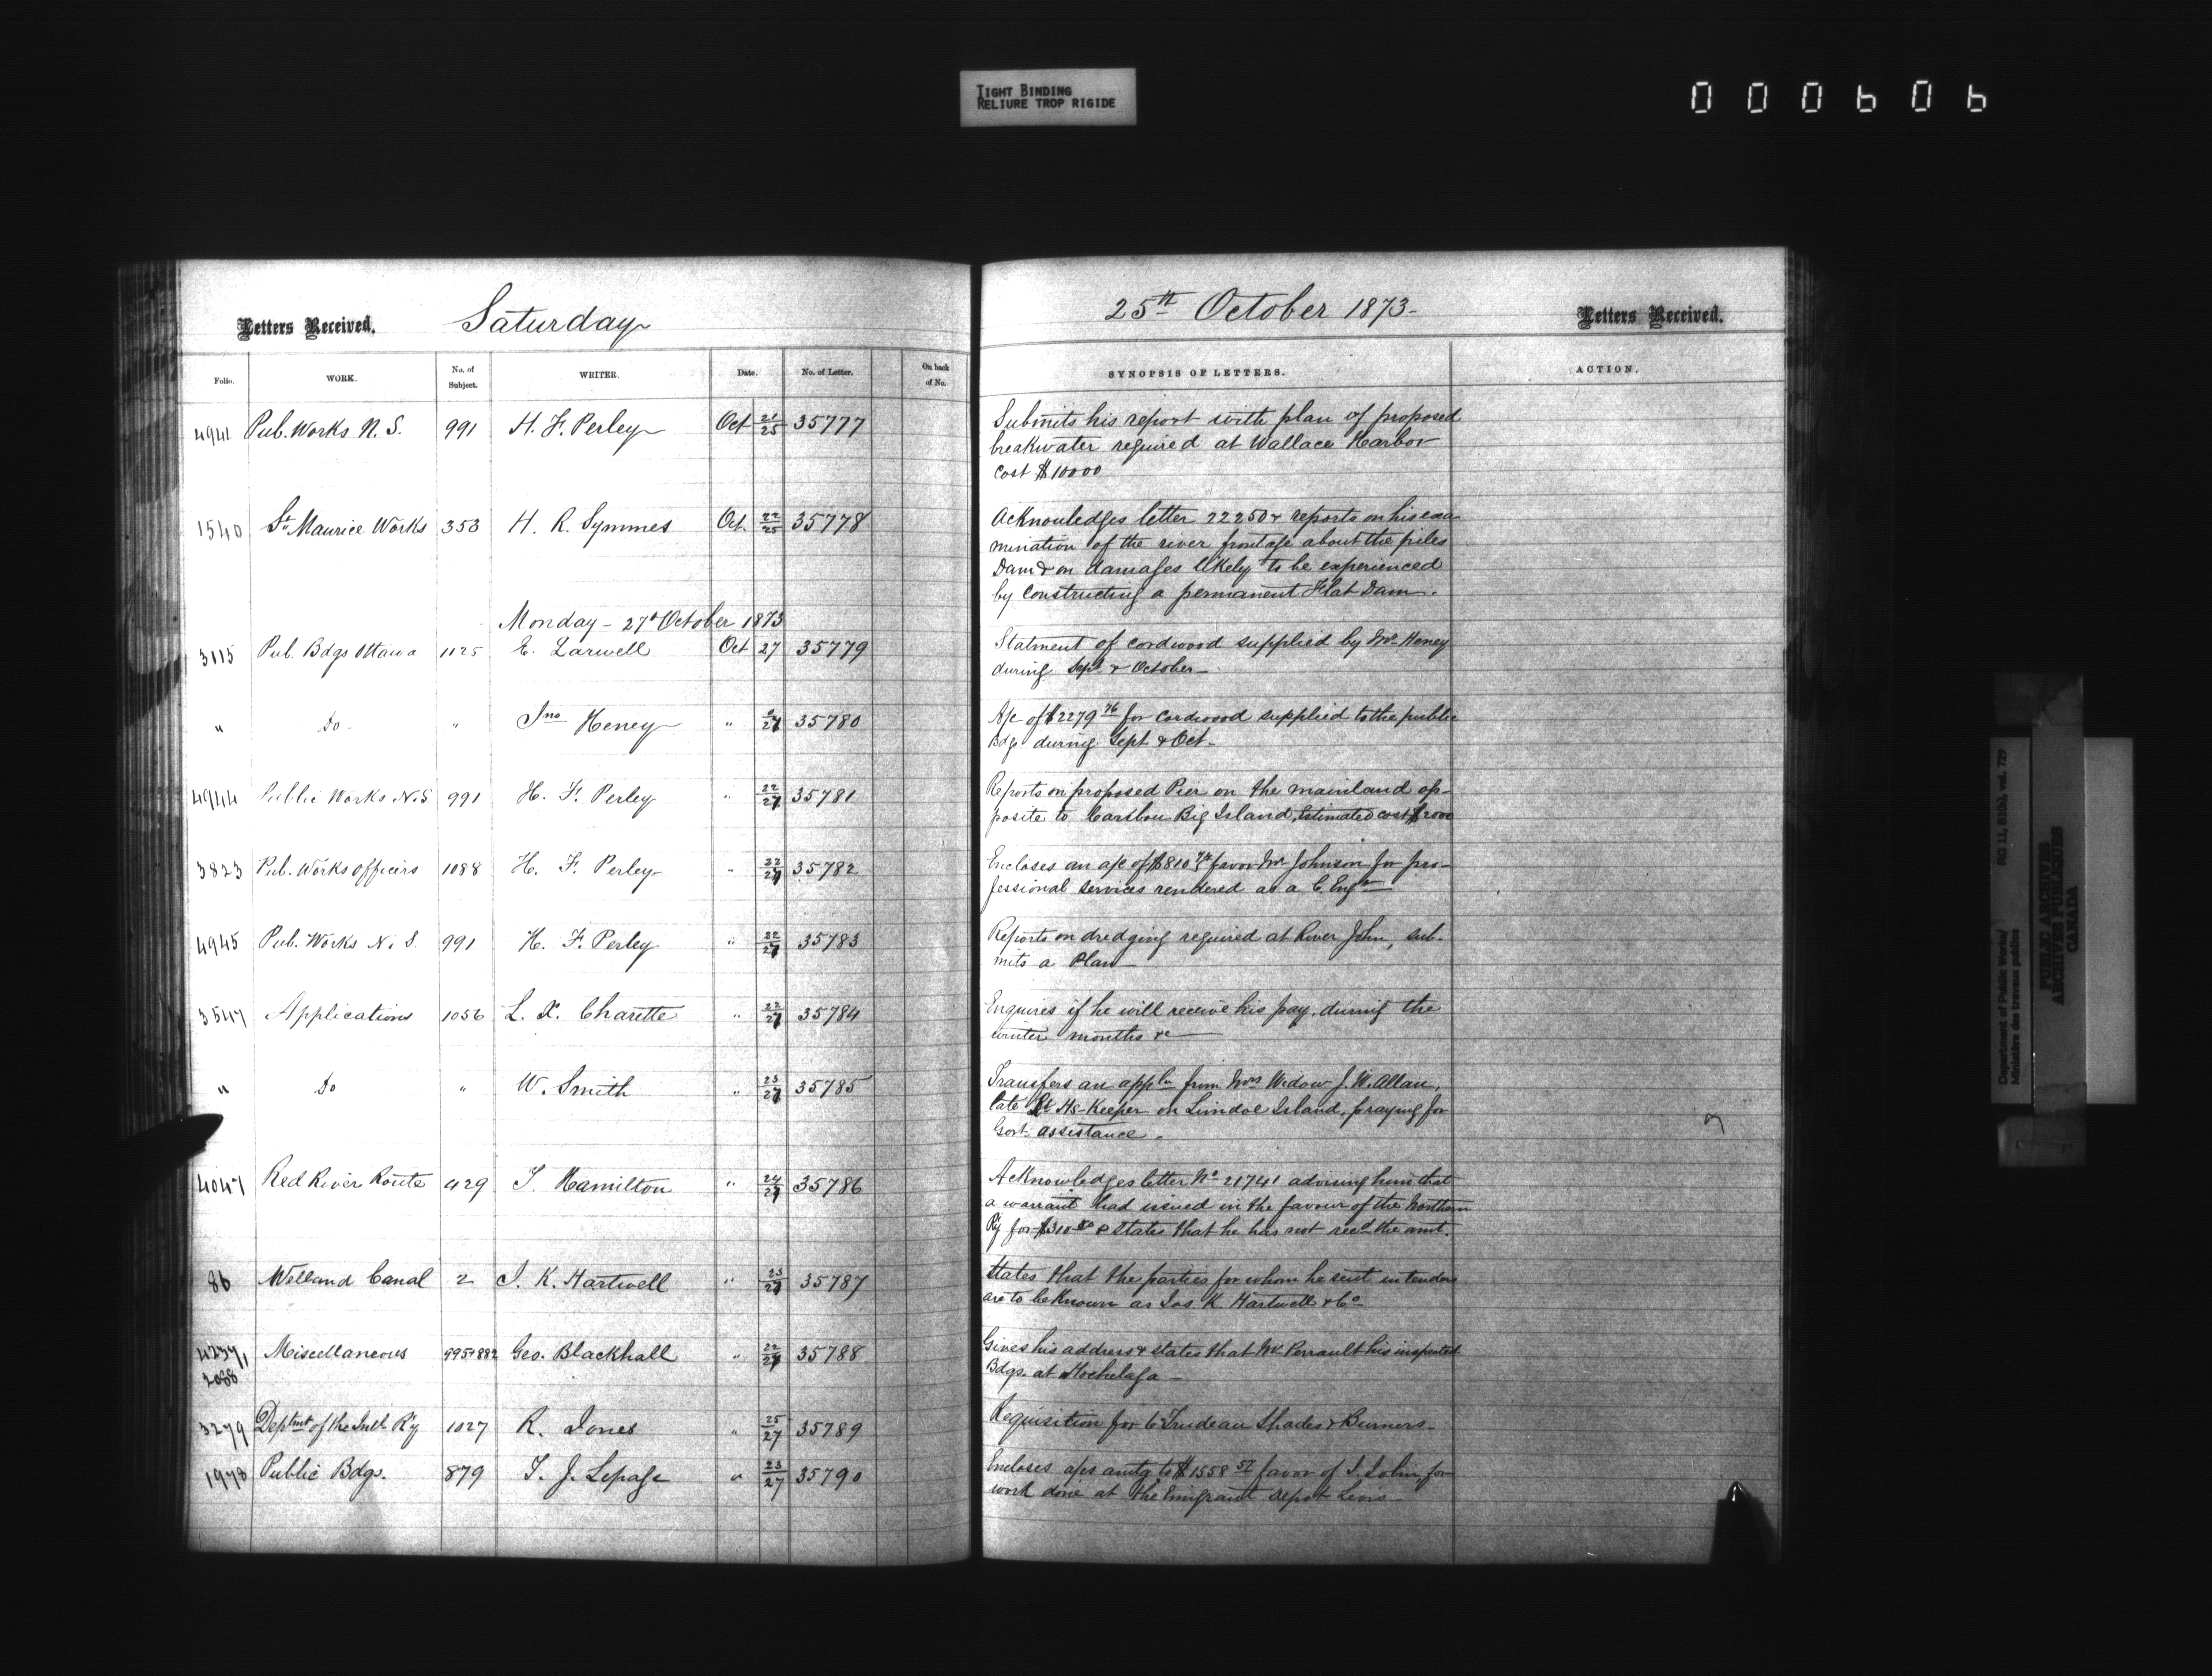 TIGHT BINDING
RELIURE TROP RIGIDE
000606
Letters Received.
Saturday
25th October 1873-
Letters Received.
Folio.
WORK.
No. of Subject.
WRITER.
Date.
No. of Letter.
On back of No.
SYNOPSIS OF LETTERS.
ACTION.
4941 Pub. Works N. S. 991 H. F. Perley Oct 21/25 35777
Submits his report with plan of proposed
breakwater required at Wallace Harbor
cost $10000
1540 St. Maurice Works 353 H. R. Symmes Oct. 22/25 35778
Acknowledges letter 22250 & reports on his exa-
mination of the river frontage about the piles
Dam & on damages likely to be experienced
by constructing a permanent Flat Dam.
Monday - 27th October 1873
3115 Pub. Bdgs Ottawa 1125 E. Larwell Oct 27 35779
Statment of cordwood supplied by Mr. Heney
during Sept & October
" Do - " Jno Heney " 27 35780
A/c of $2279 76 for cordwood supplied to the public
Bdgs during Sept & Oct -
4944 Public Works N.S 991 H. F. Perley " 22/27 35781
Reports on proposed Pier on the mainland op-
posite to Caribou Big Island, Estimated cost $2000
3823 Pub. Works officers 1088 H. F. Perley " 22/27 35782
Encloses an a/c of $810 favor Mr Johnson for pro-
fessional services rendered as a C. Engr
4945 Pub. Works N. S. 991 H. F. Perley " 22/27 35783
Reports on dredging required at River John, sub-
mits a Plan
3547 Applications 1056 L. X. Charette " 22/27 35784
Enquires if he will receive his pay, during the
winter months &c
" Do " W. Smith " 23/27 35785
Transfers an appln from Mrs Widow J. W. Allan,
late Lt Hs-Keeper on Island, praying for
Govt. assistance -
4047 Red River Route 429 J. Hamilton " 24/27 35786
Acknowledges letter No 21741 advising him that
a warrant had issued in the favour of the Northern
Ry for $310 & states that he has not recd the amt.
86 Welland Canal 2 J. K. Hartwell " 23/27 35787
States that the parties for whom he sent in tenders
are to be known as Jos. K. Hartwell & Co
4237/1 Miscellaneous 995+882 Geo. Blackhall " 22/27 35788
2088
Gives his address & states that Mr Perrault his inspected
Bdgs. at Hochelaga -
3279 Deptmt of the Intl. R'y 1027 R. Jones " 25/27 35789
Requisition for 6 Trudeau Shades & Burners -
1978 Public Bdgs. 879 T. J. Lepage " 23/27 35790
Encloses a/cs amtg to $1558 57 favor of J. Tobin for
work done at the Emigrant depot Levis -
Department of Public Works/
Ministère des travaux publics
RG 11, B1(b), vol. 729
PUBLIC ARCHIVES
ARCHIVES PUBLIQUES
CANADA